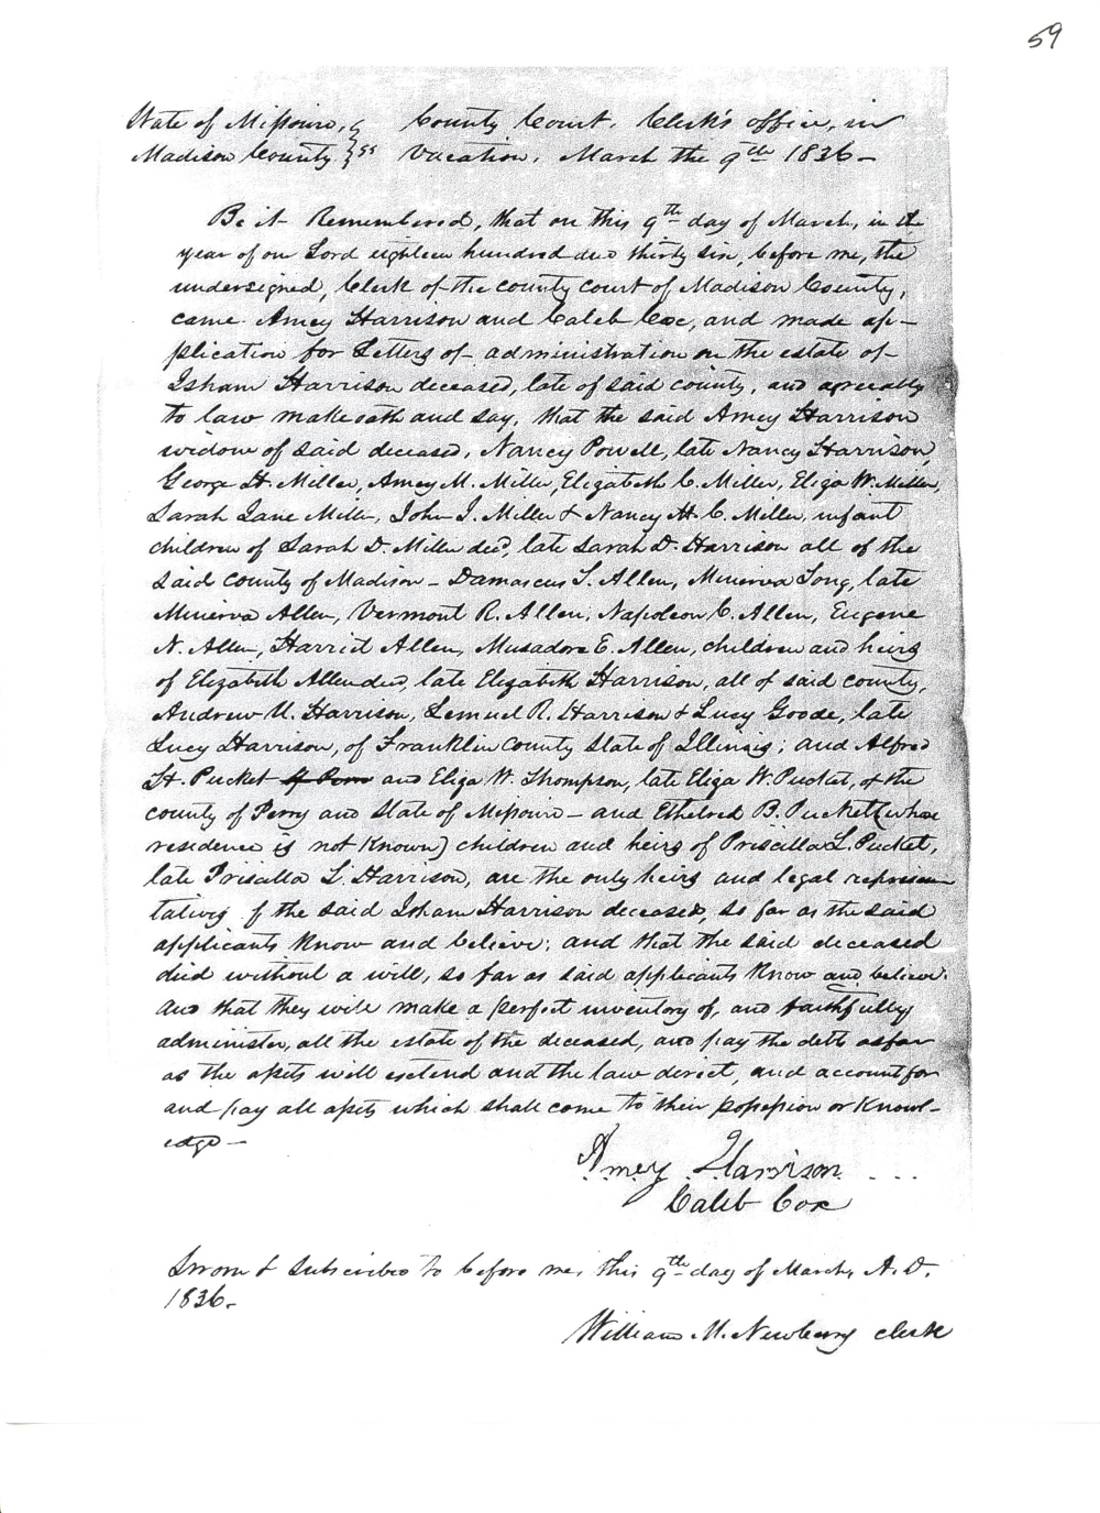 59
State of Missouri, } ss County Court, Clerk's office, in
Madison County. Vacation, March the 9th 1836 —
Be it Remembered, that on this 9th day of March, in the
year of our Lord eighteen hundred and thirty six, before me, the
undersigned, Clerk of the county court of Madison County,
came Amey Harrison and Caleb Cox, and made ap–
plication for Letters of administration on the estate of
Isham Harrison deceased, late of said county, and agreeably
to law make oath and say, that the said Amey Harrison
widow of said deceased, Nancy Powell, late Nancy Harrison,
George H. Miller, Amey M. Miller, Elizabeth C. Miller, Eliza W. Miller,
Sarah Jane Miller, John J. Miller & Nancy H. C. Miller, infant
children of Sarah D. Miller decd, late Sarah D. Harrison all of the
said county of Madison – Damascus L. Allen, Minerva Long, late
Minerva Allen, Vermont R. Allen, Napoleon C. Allen, Eugene
N. Allen, Harriet Allen, Musadora E. Allen, children and heirs
of Elizabeth Allen decd, late Elizabeth Harrison, all of said county,
Andrew U. Harrison, Lemuel R. Harrison & Lucy Goode, late
Lucy Harrison, of Franklin County State of Illinois; and Alfred
H. Pucket and Eliza W. Thompson, late Eliza W. Pucket, of the
county of Perry and State of Missouri – and Etheldred B. Pucket (whose
residence is not known) children and heirs of Priscilla L. Pucket,
late Priscilla L. Harrison, are the only heirs and legal represen
tatives of the said Isham Harrison deceased, so far as the said
applicants know and believe; and that the said deceased
died without a will, so far as said applicants know and believe.
And that they will make a perfect inventory of, and faithfully
administer, all the estate of the deceased, and pay the debts as far
as the assets will extend and the law direct, and account for
and pay all assets which shall come to their possession or knowl–
edge —
Amey Harrison
Caleb Cox
Sworn & subscribed to before me, this 9th day of March, A.D.
1836.
William M. Newberry clerk